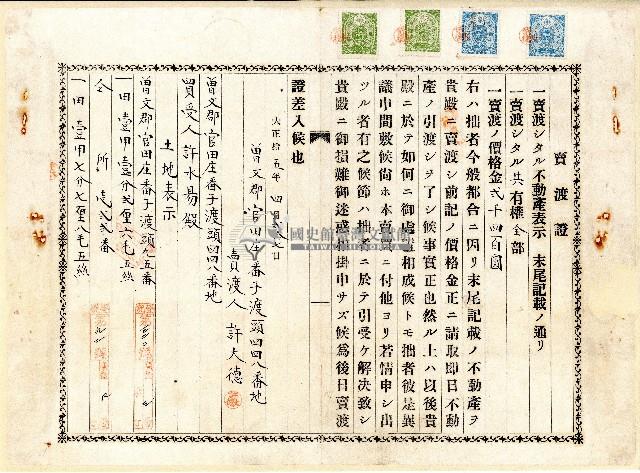 賣渡證
一賣渡シタル不動產表示 末尾記載ノ通リ
一賣渡シタル共有權全部
一賣渡ノ價格金弍千四百圓
右ハ拙者今般都合ニ因リ末尾記載ノ不動產ヲ
貴殿ニ賣渡シ前記ノ價格金正ニ請取卽日不動
產ノ引渡シヲ了シ候事實正也然ル上ハ以後貴
殿ニ於テ如何ニ御處置相成候トモ拙者彼是異
議申間敷候尙ホ本賣買ニ付他ヨリ若情申シ出
ツル者有之候節ハ拙者ニ於テ引受ケ解決致シ
貴殿ニ御損難御迷惑相掛申サズ候爲後日賣渡
證差入候也
大正拾五年 四月 七日
曾文郡官田庄番子渡頭四四八番地
賣渡人 許大德
曾文郡官田庄番子渡頭四四八番地
買受人 許水易殿
土地表示
曾文郡官田庄番子渡頭九五番
一田 壹甲壹分弍厘六毛五絲
仝所 壱弍弍番
一田 壹甲七分七厘八毛五絲
國史館臺灣文獻館